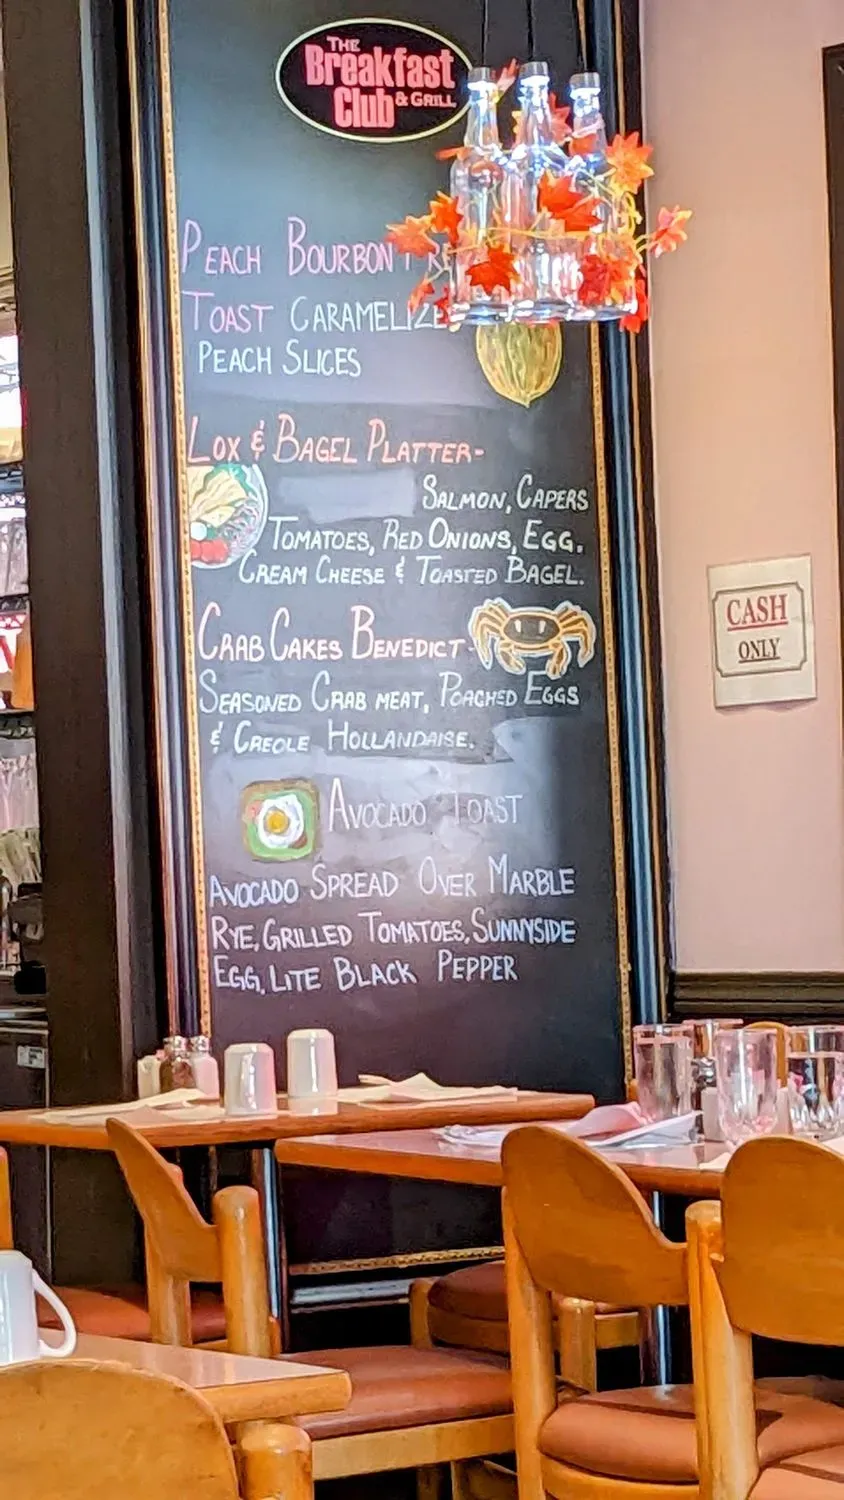 THE
Breakfast
Club & GRILL
PEACH BOURBON
TOAST CARAMELIZE
PEACH SLICES
LOX & BAGEL PLATTER-
SALMON, CAPERS
TOMATOES, RED ONIONS, EGG.
CREAM CHEESE & TOASTED BAGEL.
CRAB CAKES BENEDICT-
SEASONED CRAB MEAT, POACHED EGGS
& CREOLE HOLLANDAISE.
AVOCADO TOAST
AVOCADO SPREAD OVER MARBLE
RYE, GRILLED TOMATOES, SUNNYSIDE
EGG, LITE BLACK PEPPER
CASH
ONLY